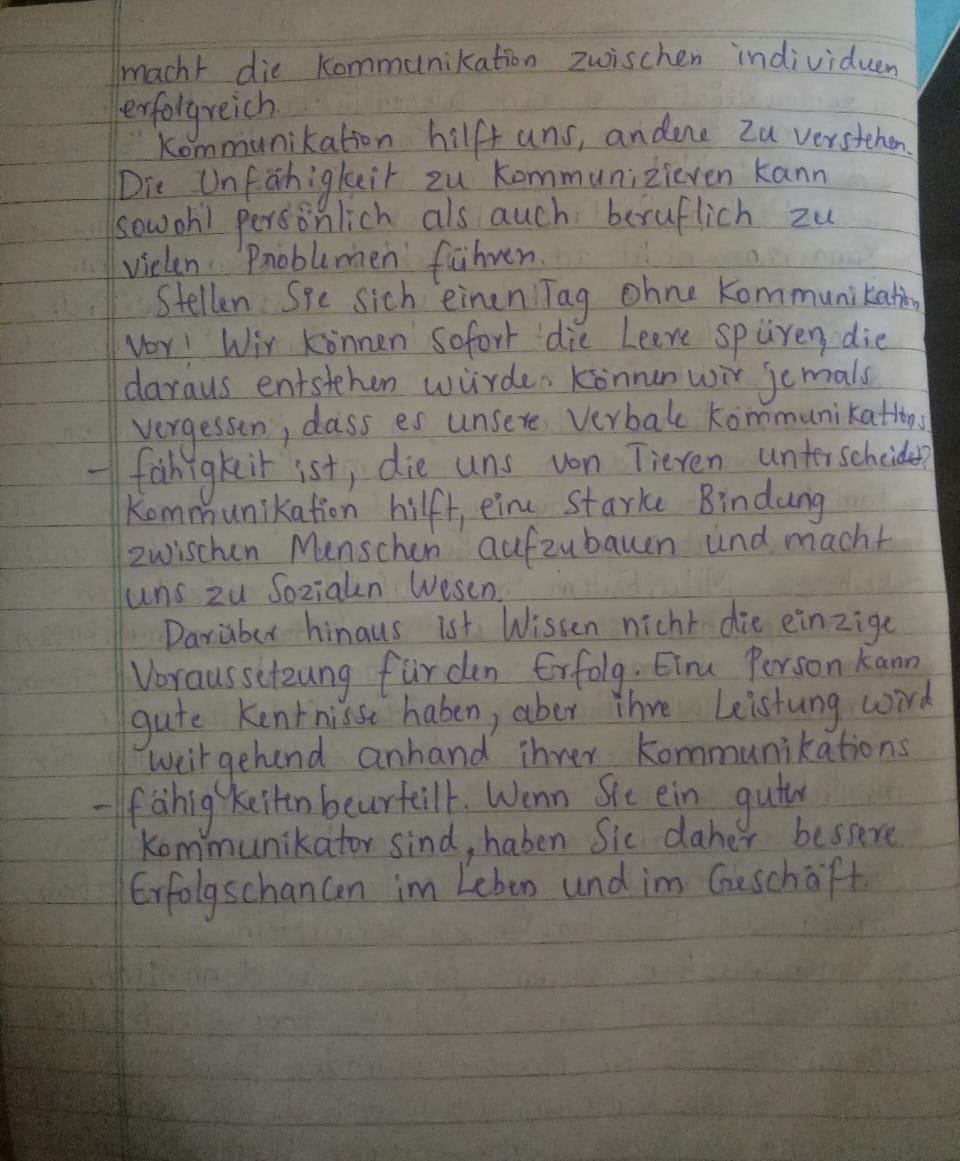 macht die Kommunikation zwischen individuen
erfolgreich
Kommunikation hilft uns, andere zu verstehen.
Die Unfähigkeit zu kommunizieren kann
sowohl persönlich als auch beruflich zu
vielen Problemen führen.
Stellen Sie sich einen Tag ohne Kommunikation
vor! Wir können sofort die Leere spüren, die
daraus entstehen würde. Können wir jemals
vergessen, dass es unsere verbale Kommunikations
- fähigkeit ist, die uns von Tieren unterscheidet?
Kommunikation hilft, eine starke Bindung
zwischen Menschen aufzubauen und macht
uns zu Sozialen Wesen.
Darüber hinaus ist Wissen nicht die einzige
Voraussetzung für den Erfolg. Eine Person kann
gute Kentnisse haben, aber ihre Leistung wird
weitgehend anhand ihrer Kommunikations
- fähigkeiten beurteilt. Wenn Sie ein guter
Kommunikator sind, haben Sie daher bessere
Erfolgschancen im Leben und im Geschäft.